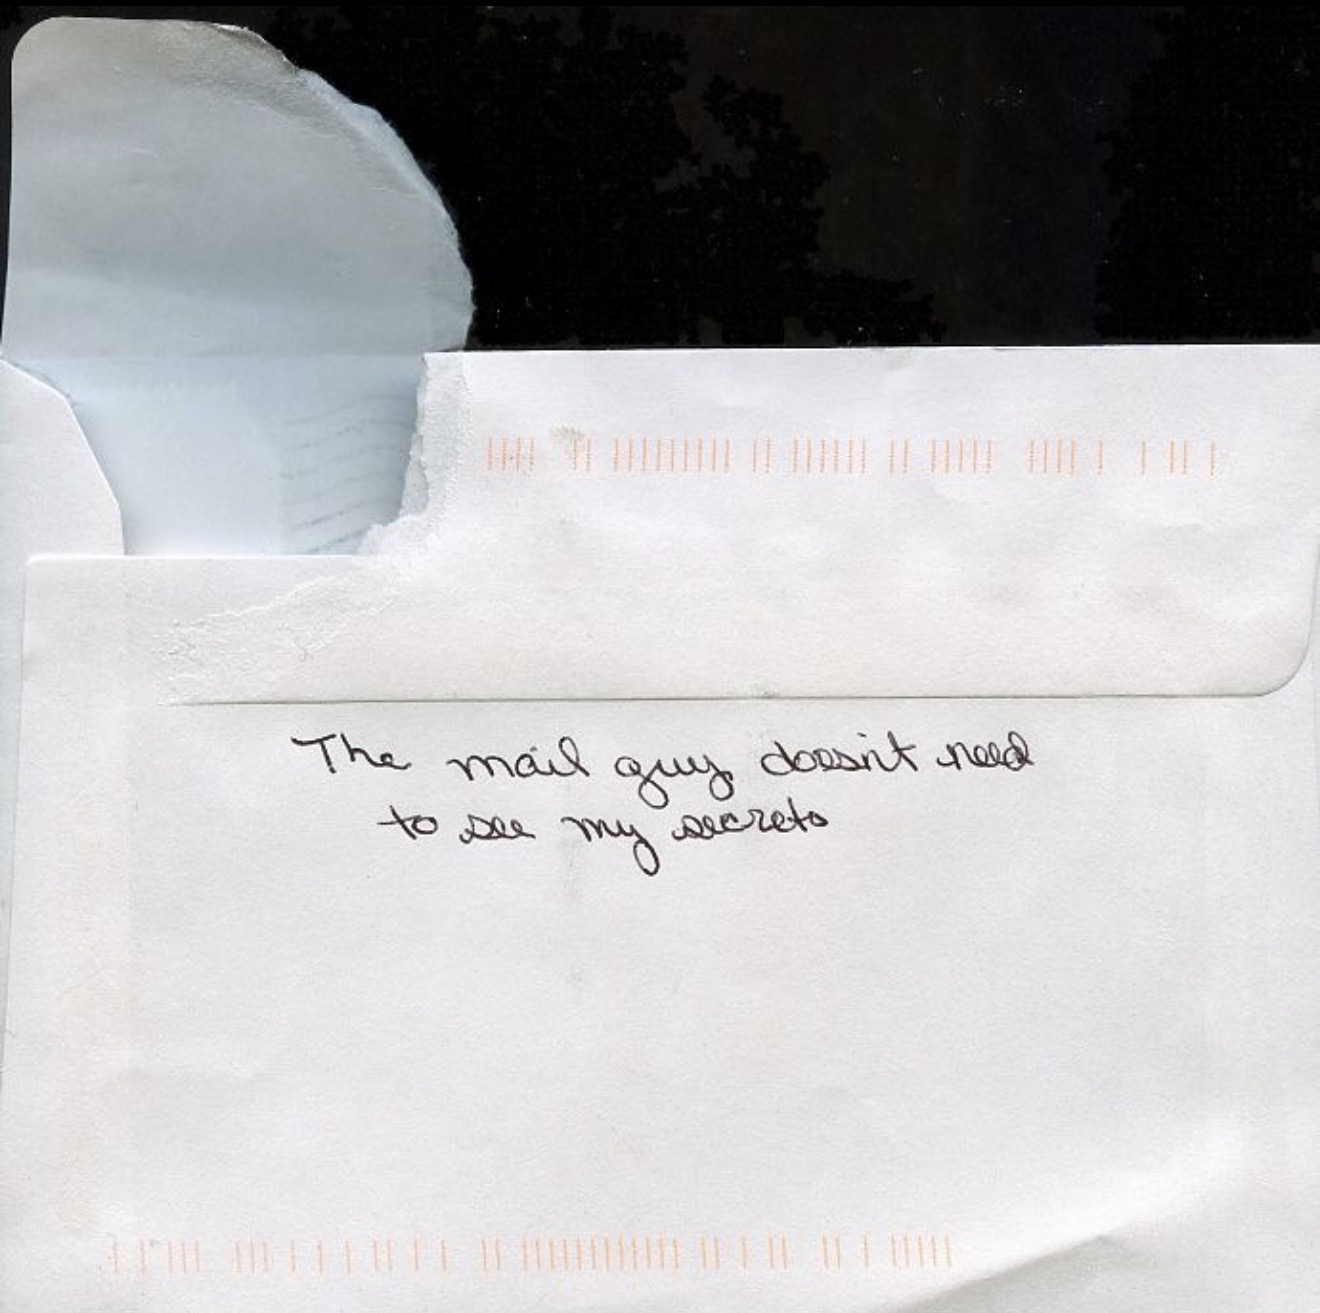 The mail guy doesn't need
to see my secrets